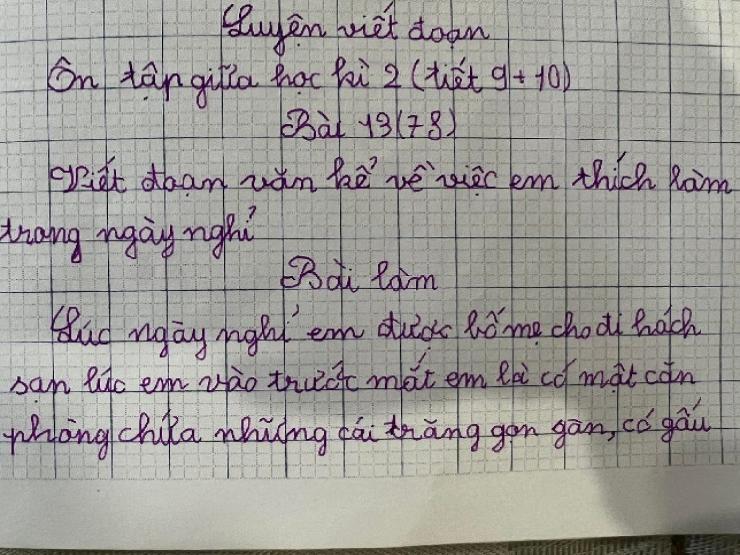 Luyện viết đoạn
Ôn tập giữa học kì 2 (tiết 9 + 10)
Bài 13 (78)
Viết đoạn văn kể về việc em thích làm
trong ngày nghỉ
Bài làm
Lúc ngày nghỉ em được bố mẹ cho đi hách
sạn lúc em vào trước mắt em là có một căn
phòng chứa những cái trăng gọn gàn, có gấu